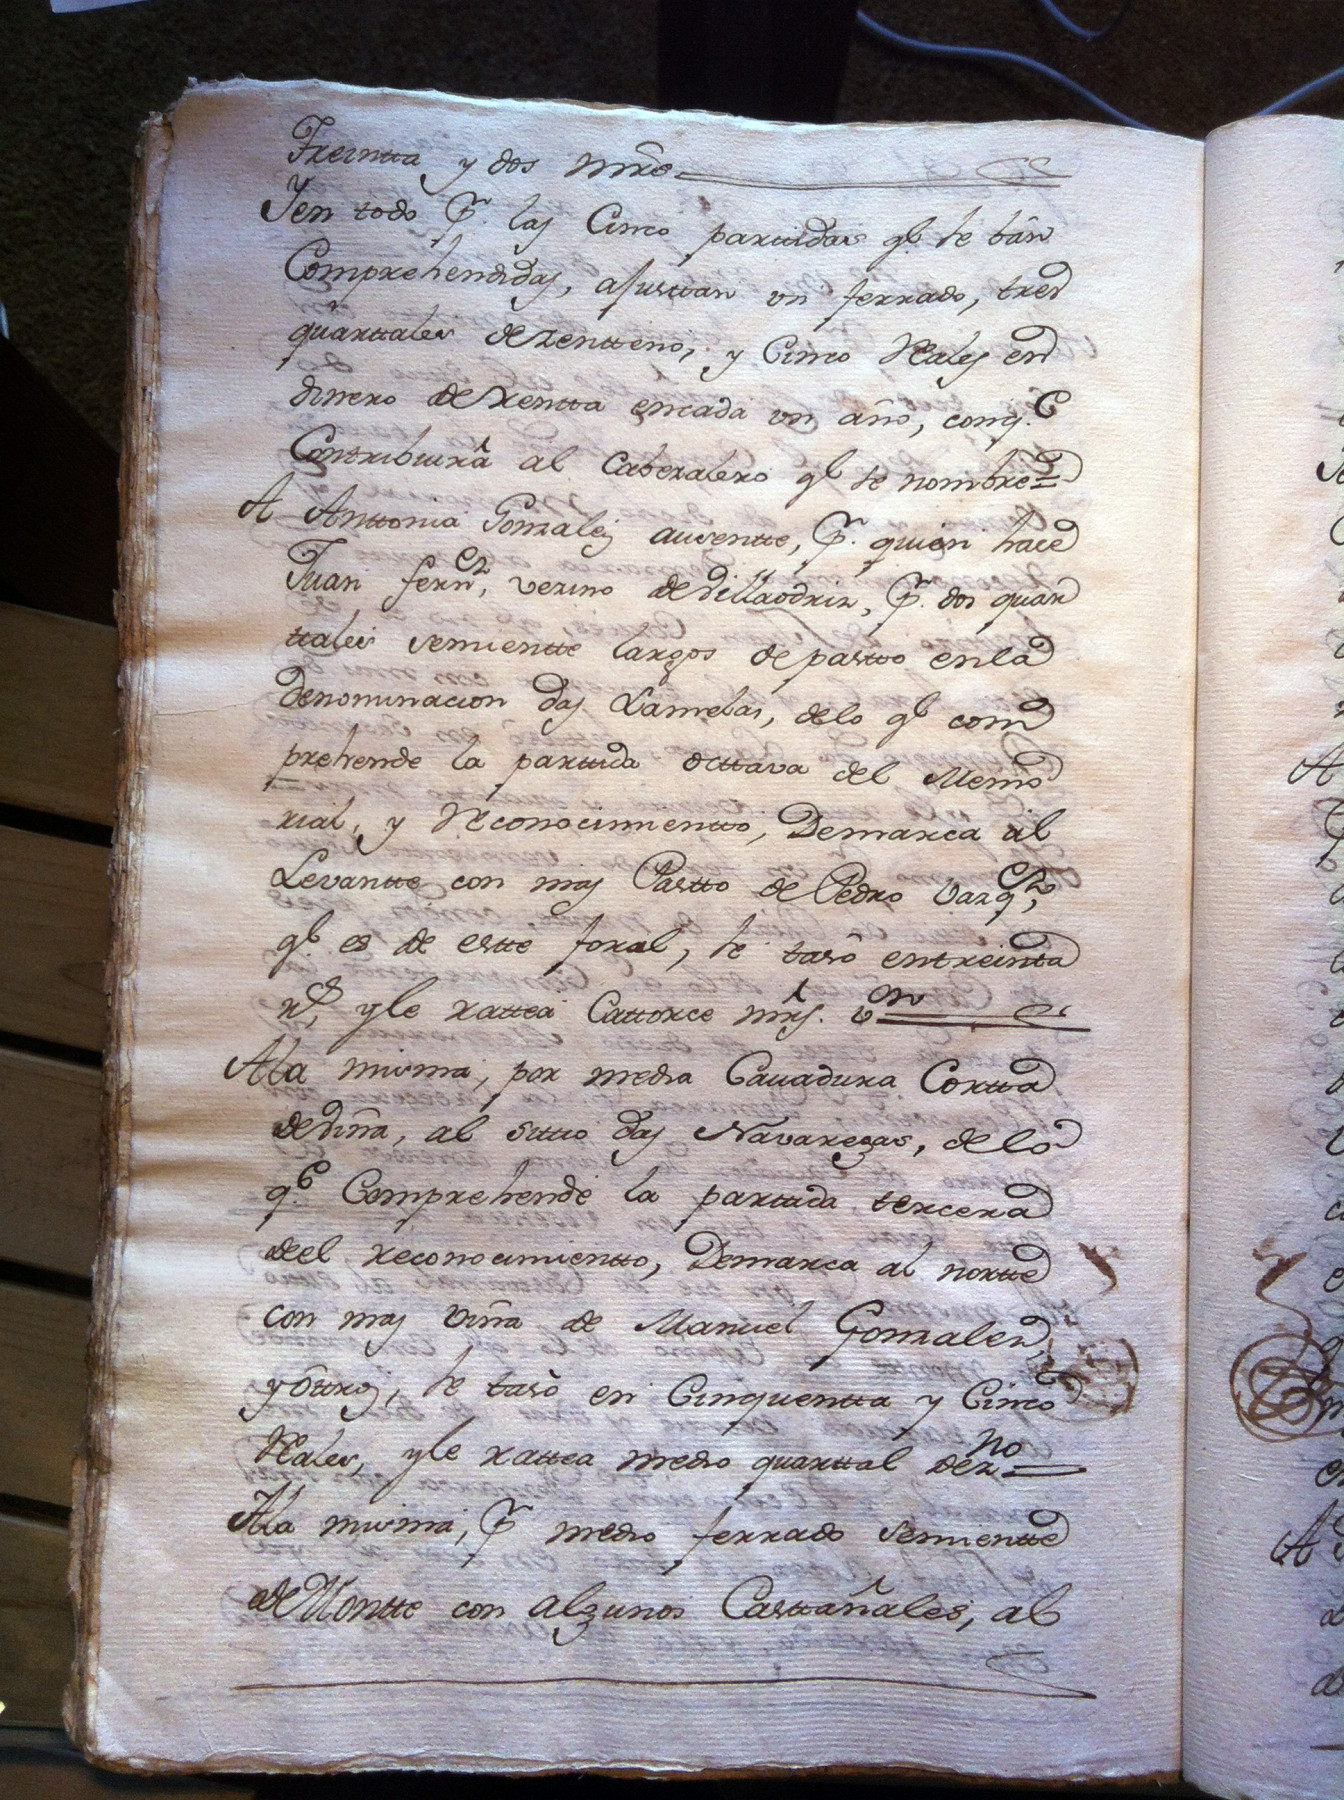 Treintta y dos mrs.
Yen todo Pr. las Cinco parttidas qe. le bán
Comprehendidas, ajusttan un ferrado, tres
quarttales dezentteno, y Cinco Reales en
dinero de Rentta encada un año, conq.e
Contribuirá al Cabezalero qe se nombre=
A Anttonia Gonzalez ausentte, Pr. quien hace
Juan fernz, vezino de Villaodriz, Pr. dos quar
ttales semientte largos de pastto enla
denominacion das Lamelas, delo qe com
prehende la parttida octtava del Memo
rial, y Reconocimientto, Demarca al
Levantte con mas Pastto de Pedro Vazqz,
qe. es de estte foral, se tasó entreinta
rs, yle rattea Cattorce mrs. vn
Ala misma, por media Cavadura Cortta
deviña, al sittio das Navaregas, delo
q.e Comprehende la parttida tercera
del reconocimientto, Demarca al nortte
con mas viña de Manuel Gonzalez,
yottros, se tasó en Cinquentta y Cinco
Reales, yle rattea medio quarttal dezno=
Ala misma, Pr medio ferrado semientte
de Montte con algunos Casttañales, al